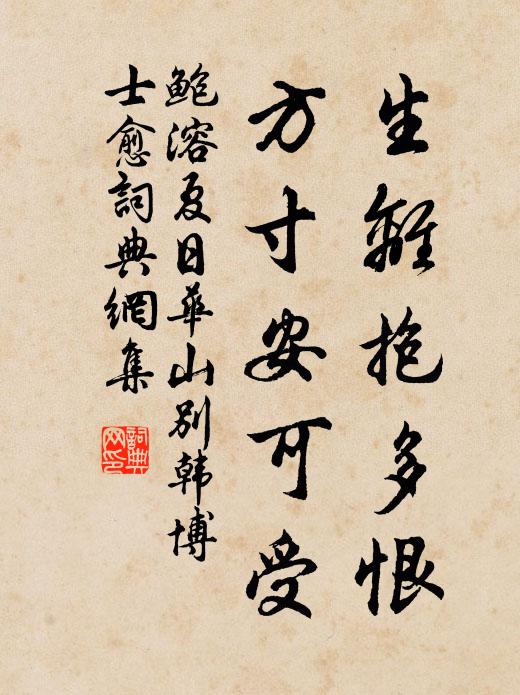 生離抱多恨
方寸安可受
鮑溶夏日華山別韩博
士愈詞典網集
詞典
网印